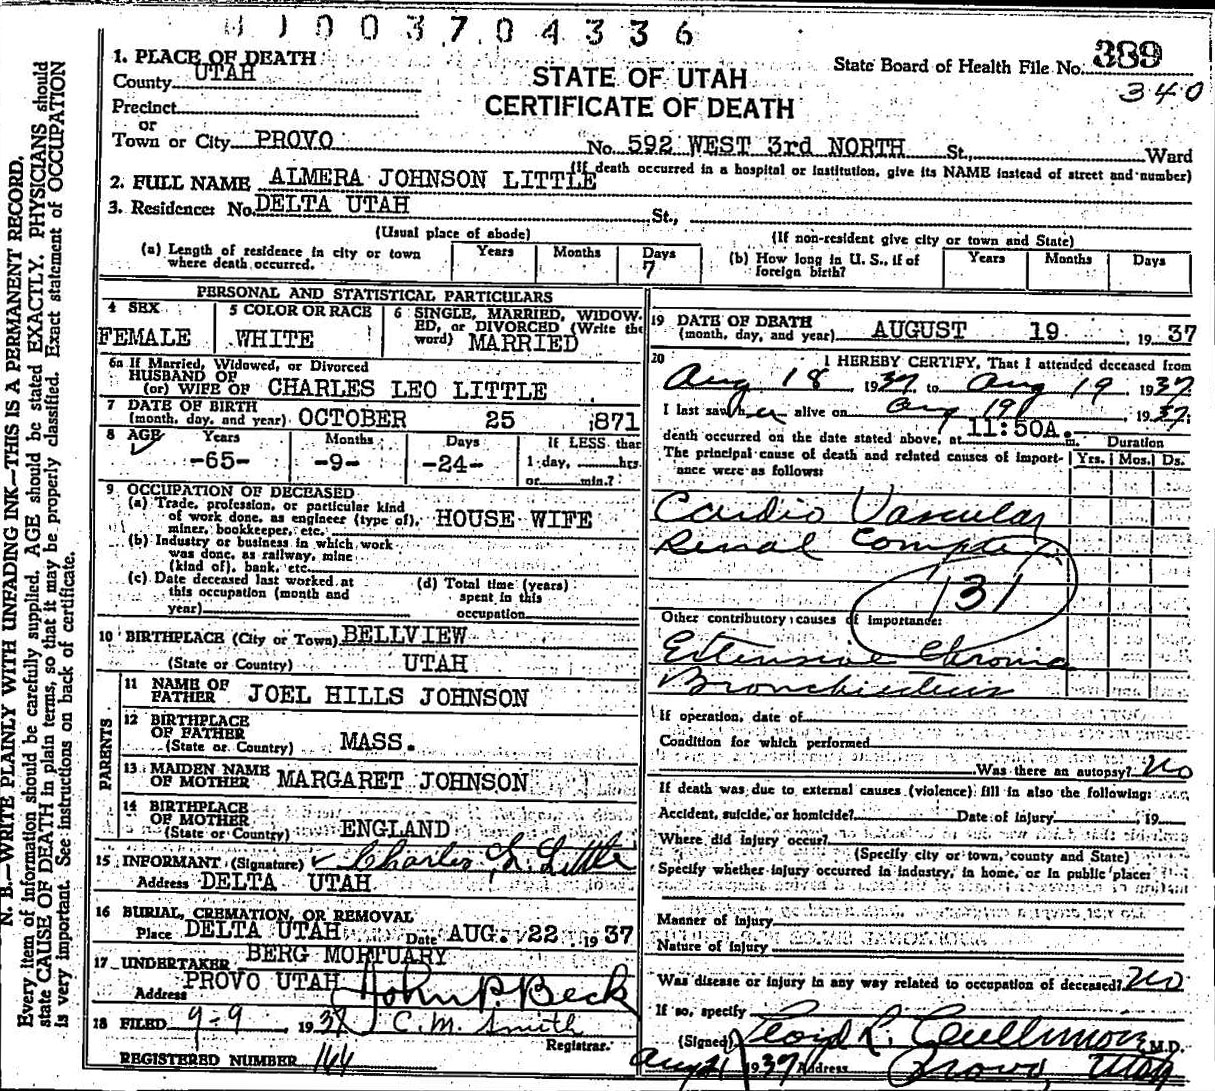 0 0 3 7 0 4 3 3 6
1. PLACE OF DEATH
County UTAH
Precinct
or
Town or City PROVO
STATE OF UTAH
CERTIFICATE OF DEATH
State Board of Health File No. 389
340
No. 592 WEST 3rd NORTH St., Ward
(If death occurred in a hospital or institution, give its NAME instead of street and number)
2. FULL NAME ALMERA JOHNSON LITTLE
3. Residence: No. DELTA UTAH St.,
(Usual place of abode)
(If non-resident give city or town and State)
(a) Length of residence in city or town where death occurred. Years Months Days 7
(b) How long in U. S., if of foreign birth? Years Months Days
PERSONAL AND STATISTICAL PARTICULARS
4 SEX FEMALE
5 COLOR OR RACE WHITE
6 SINGLE, MARRIED, WIDOWED, or DIVORCED (Write the word) MARRIED
6a If Married, Widowed, or Divorced
HUSBAND OF
(or) WIFE OF CHARLES LEO LITTLE
7 DATE OF BIRTH
(month, day, and year) OCTOBER 25 1871
8 AGE Years Months Days If LESS than
-65- -9- -24- 1 day, hrs.
or min.?
9 OCCUPATION OF DECEASED
(a) Trade, profession, or particular kind
of work done, as engineer (type of), HOUSE WIFE
miner, bookkeeper, etc.
(b) Industry or business in which work
was done, as railway, mine
(kind of), bank, etc.
(c) Date deceased last worked at
this occupation (month and
year)
(d) Total time (years)
spent in this
occupation
10 BIRTHPLACE (City or Town) BELLVIEW
(State or Country) UTAH
PARENTS
11 NAME OF
FATHER JOEL HILLS JOHNSON
12 BIRTHPLACE
OF FATHER
(State or Country) MASS.
13 MAIDEN NAME
OF MOTHER MARGARET JOHNSON
14 BIRTHPLACE
OF MOTHER
(State or Country) ENGLAND
15 INFORMANT (Signature) Charles L. Little
Address DELTA UTAH
16 BURIAL, CREMATION, OR REMOVAL
Place DELTA UTAH Date AUG. 22 1937
17 UNDERTAKER BERG MORTUARY
Address PROVO UTAH John P. Beck
18 FILED 9-9, 1937 C. M. Smith
Registrar.
REGISTERED NUMBER 144
19 DATE OF DEATH
(month, day, and year) AUGUST 19, 1937
20 I HEREBY CERTIFY, That I attended deceased from
Aug 18 1937 to Aug 19 1937
I last saw her alive on Aug 19 1937
death occurred on the date stated above, at 11:50A. m. Duration
The principal cause of death and related causes of importance were as follows: Yrs. Mos. Ds.
Cardio Vascular
Renal Complex
131
Other contributory causes of importance:
Extensive Chronic
Bronchiectasis
If operation, date of
Condition for which performed
Was there an autopsy? No
If death was due to external causes (violence) fill in also the following:
Accident, suicide, or homicide? Date of injury 19
Where did injury occur?
(Specify city or town, county and State)
Specify whether injury occurred in industry, in home, or in public place:
Manner of injury
Nature of injury
Was disease or injury in any way related to occupation of deceased? No
If so, specify
(Signed) Floyd R. Cullimore M.D.
Aug 21 1937 Address Provo Utah
N. B.—WRITE PLAINLY WITH UNFADING INK—THIS IS A PERMANENT RECORD.
Every item of information should be carefully supplied. AGE should be stated EXACTLY. PHYSICIANS should
state CAUSE OF DEATH in plain terms, so that it may be properly classified. Exact statement of OCCUPATION
is very important. See instructions on back of certificate.